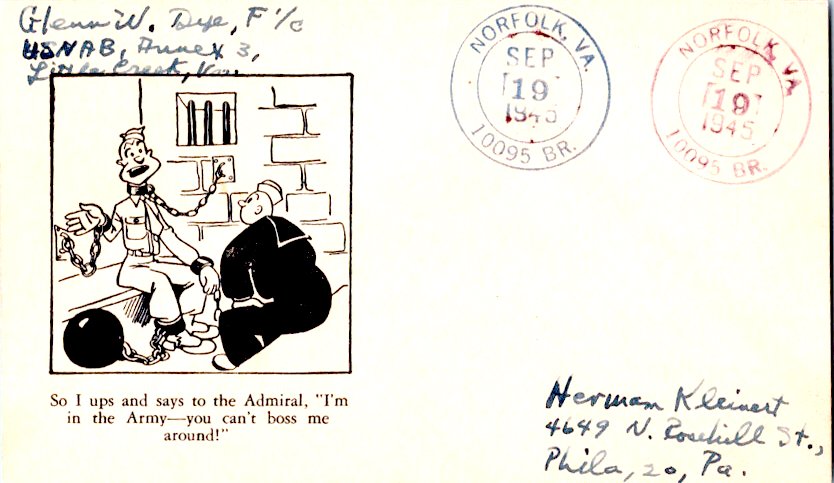 Glenn W. Dye, F 1/c
USNAB, Annex 3,
Little Creek, Va.
NORFOLK, VA.
SEP
19
1945
10095 BR.
NORFOLK, VA.
SEP
19
1945
10095 BR.
So I ups and says to the Admiral, "I'm
in the Army—you can't boss me
around!"
Herman Kleinert
4649 N. Rosehill St.,
Phila, 20, Pa.